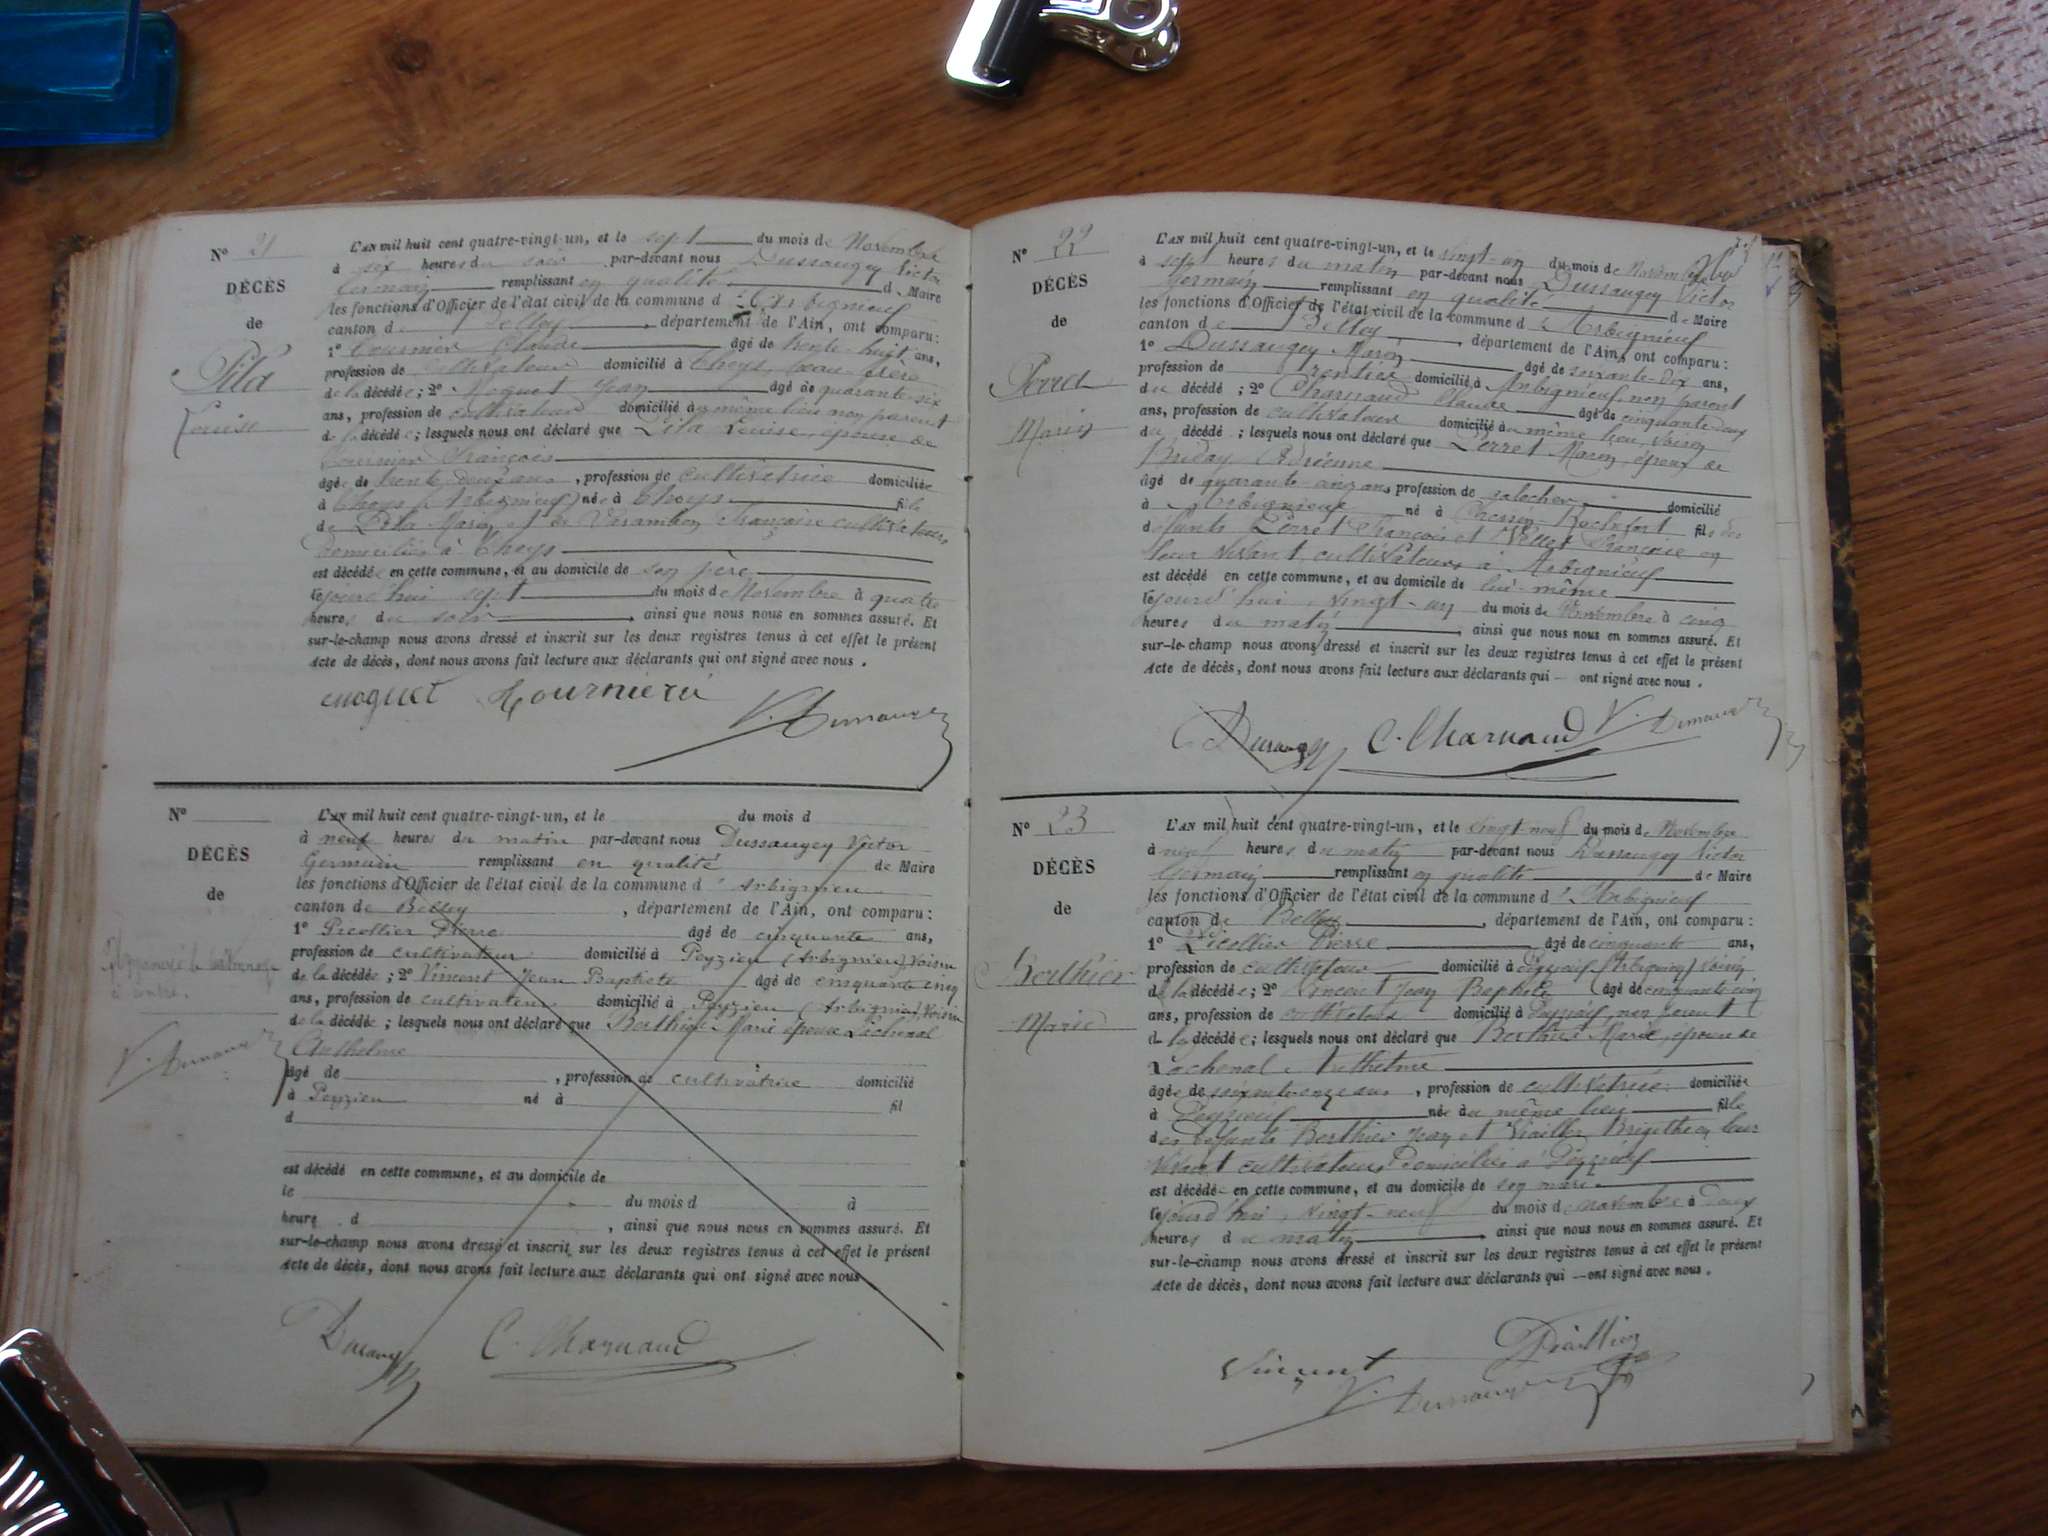 N° 21
DÉCÈS
de
Pila
Louise
L'AN mil huit cent quatre-vingt-un, et le sept du mois de Novembre
à six heures du soir par-devant nous Dussaugey Victor
Germain remplissant en qualité de Maire
les fonctions d'Officier de l'état civil de la commune d'Arbignieu
canton de Belley, département de l'Ain, ont comparu:
1° Fournier Claude âgé de trente-huit ans,
profession de cultivateur domicilié à Thoys, beau-frère
de la décédée; 2° Moquet Jean âgé de quarante-six
ans, profession de cultivateur domicilié au même lieu non parent
de la décédée; lesquels nous ont déclaré que Pila Louise, épouse de
Fournier François
âgée de trente-deux ans, profession de cultivatrice domiciliée
à Thoys (Arbignieu) née à Thoys fille
de Pila Marin et de Varambon Françoise cultivateurs
domiciliés à Thoys
est décédée en cette commune, et au domicile de son père
lejourd'hui sept du mois de Novembre à quatre
heures du soir, ainsi que nous nous en sommes assuré. Et
sur-le-champ nous avons dressé et inscrit sur les deux registres tenus à cet effet le présent
Acte de décès, dont nous avons fait lecture aux déclarants qui ont signé avec nous.
moquet Fournier V. Dussaugey
N°
DÉCÈS
de
V. Dussaugey
L'AN mil huit cent quatre-vingt-un, et le du mois d
à neuf heures du matin par-devant nous Dussaugey Victor
Germain remplissant en qualité de Maire
les fonctions d'Officier de l'état civil de la commune d'Arbignieu
canton de Belley, département de l'Ain, ont comparu:
1° Picollier Pierre âgé de cinquante ans,
profession de cultivateur domicilié à Peyzieu (Arbignieu), Voisin
de la décédée; 2° Vincent Jean Baptiste âgé de cinquante cinq
ans, profession de cultivateur domicilié à Peyzieu (Arbignieu), Voisin
de la décédée; lesquels nous ont déclaré que Berthier Marie épouse Lachenal
Anthelme
âgé de, profession de cultivatrice domicilié
à Peyzieu né à fil
d
est décédé en cette commune, et au domicile de
le du mois d à
heure d, ainsi que nous nous en sommes assuré. Et
sur-le-champ nous avons dressé et inscrit sur les deux registres tenus à cet effet le présent
Acte de décès, dont nous avons fait lecture aux déclarants qui ont signé avec nous
Dussaugey C. Charnaud
N° 22
DÉCÈS
de
Perret
Marin
L'AN mil huit cent quatre-vingt-un, et le vingt-un du mois de Novembre
à sept heures du matin par-devant nous Dussaugey Victor
Germain remplissant en qualité de Maire
les fonctions d'Officier de l'état civil de la commune d'Arbignieu
canton de Belley, département de l'Ain, ont comparu:
1° Dussaugey Marin âgé de soixante-dix ans,
profession de rentier domicilié à Arbignieu, non parent
du décédé; 2° Charnaud Claude âgé de cinquante-deux
ans, profession de cultivateur domicilié au même lieu, voisin
du décédé; lesquels nous ont déclaré que Perret Marin, époux de
Briday Adrienne
âgé de quarante-cinq ans profession de domicilié
à Arbignieu né à Chessin-Rochefort fils des
défunts Perret François et Françoise en
leur vivant cultivateurs à Arbignieu
est décédé en cette commune, et au domicile de lui-même
lejourd'hui, vingt-un du mois de Novembre à cinq
heures du matin, ainsi que nous nous en sommes assuré. Et
sur-le-champ nous avons dressé et inscrit sur les deux registres tenus à cet effet le présent
Acte de décès, dont nous avons fait lecture aux déclarants qui ont signé avec nous.
Dussaugey C. Charnaud V. Dussaugey
N° 23
DÉCÈS
de
Berthier
Marie
L'AN mil huit cent quatre-vingt-un, et le vingt-neuf du mois de Novembre
à neuf heures du matin par-devant nous Dussaugey Victor
Germain remplissant en qualité de Maire
les fonctions d'Officier de l'état civil de la commune d'Arbignieu
canton de Belley, département de l'Ain, ont comparu:
1° Picollier Pierre âgé de cinquante ans,
profession de cultivateur domicilié à Peyzieu (Arbignieu) voisin
de la décédée; 2° Vincent Jean Baptiste âgé de cinquante-cinq
ans, profession de cultivateur domicilié à Peyzieu, non parent
de la décédée; lesquels nous ont déclaré que Berthier Marie, épouse de
Lachenal Anthelme
âgée de soixante-onze ans, profession de cultivatrice domiciliée
à Peyzieu née au même lieu fille
des défunts Berthier Jean et Brigithe en leur
vivant cultivateurs domiciliés à Peyzieu
est décédée en cette commune, et au domicile de son mari
lejourd'hui, vingt-neuf du mois de novembre à deux
heures du matin, ainsi que nous nous en sommes assuré. Et
sur-le-champ nous avons dressé et inscrit sur les deux registres tenus à cet effet le présent
Acte de décès, dont nous avons fait lecture aux déclarants qui ont signé avec nous.
Vincent
V. Dussaugey